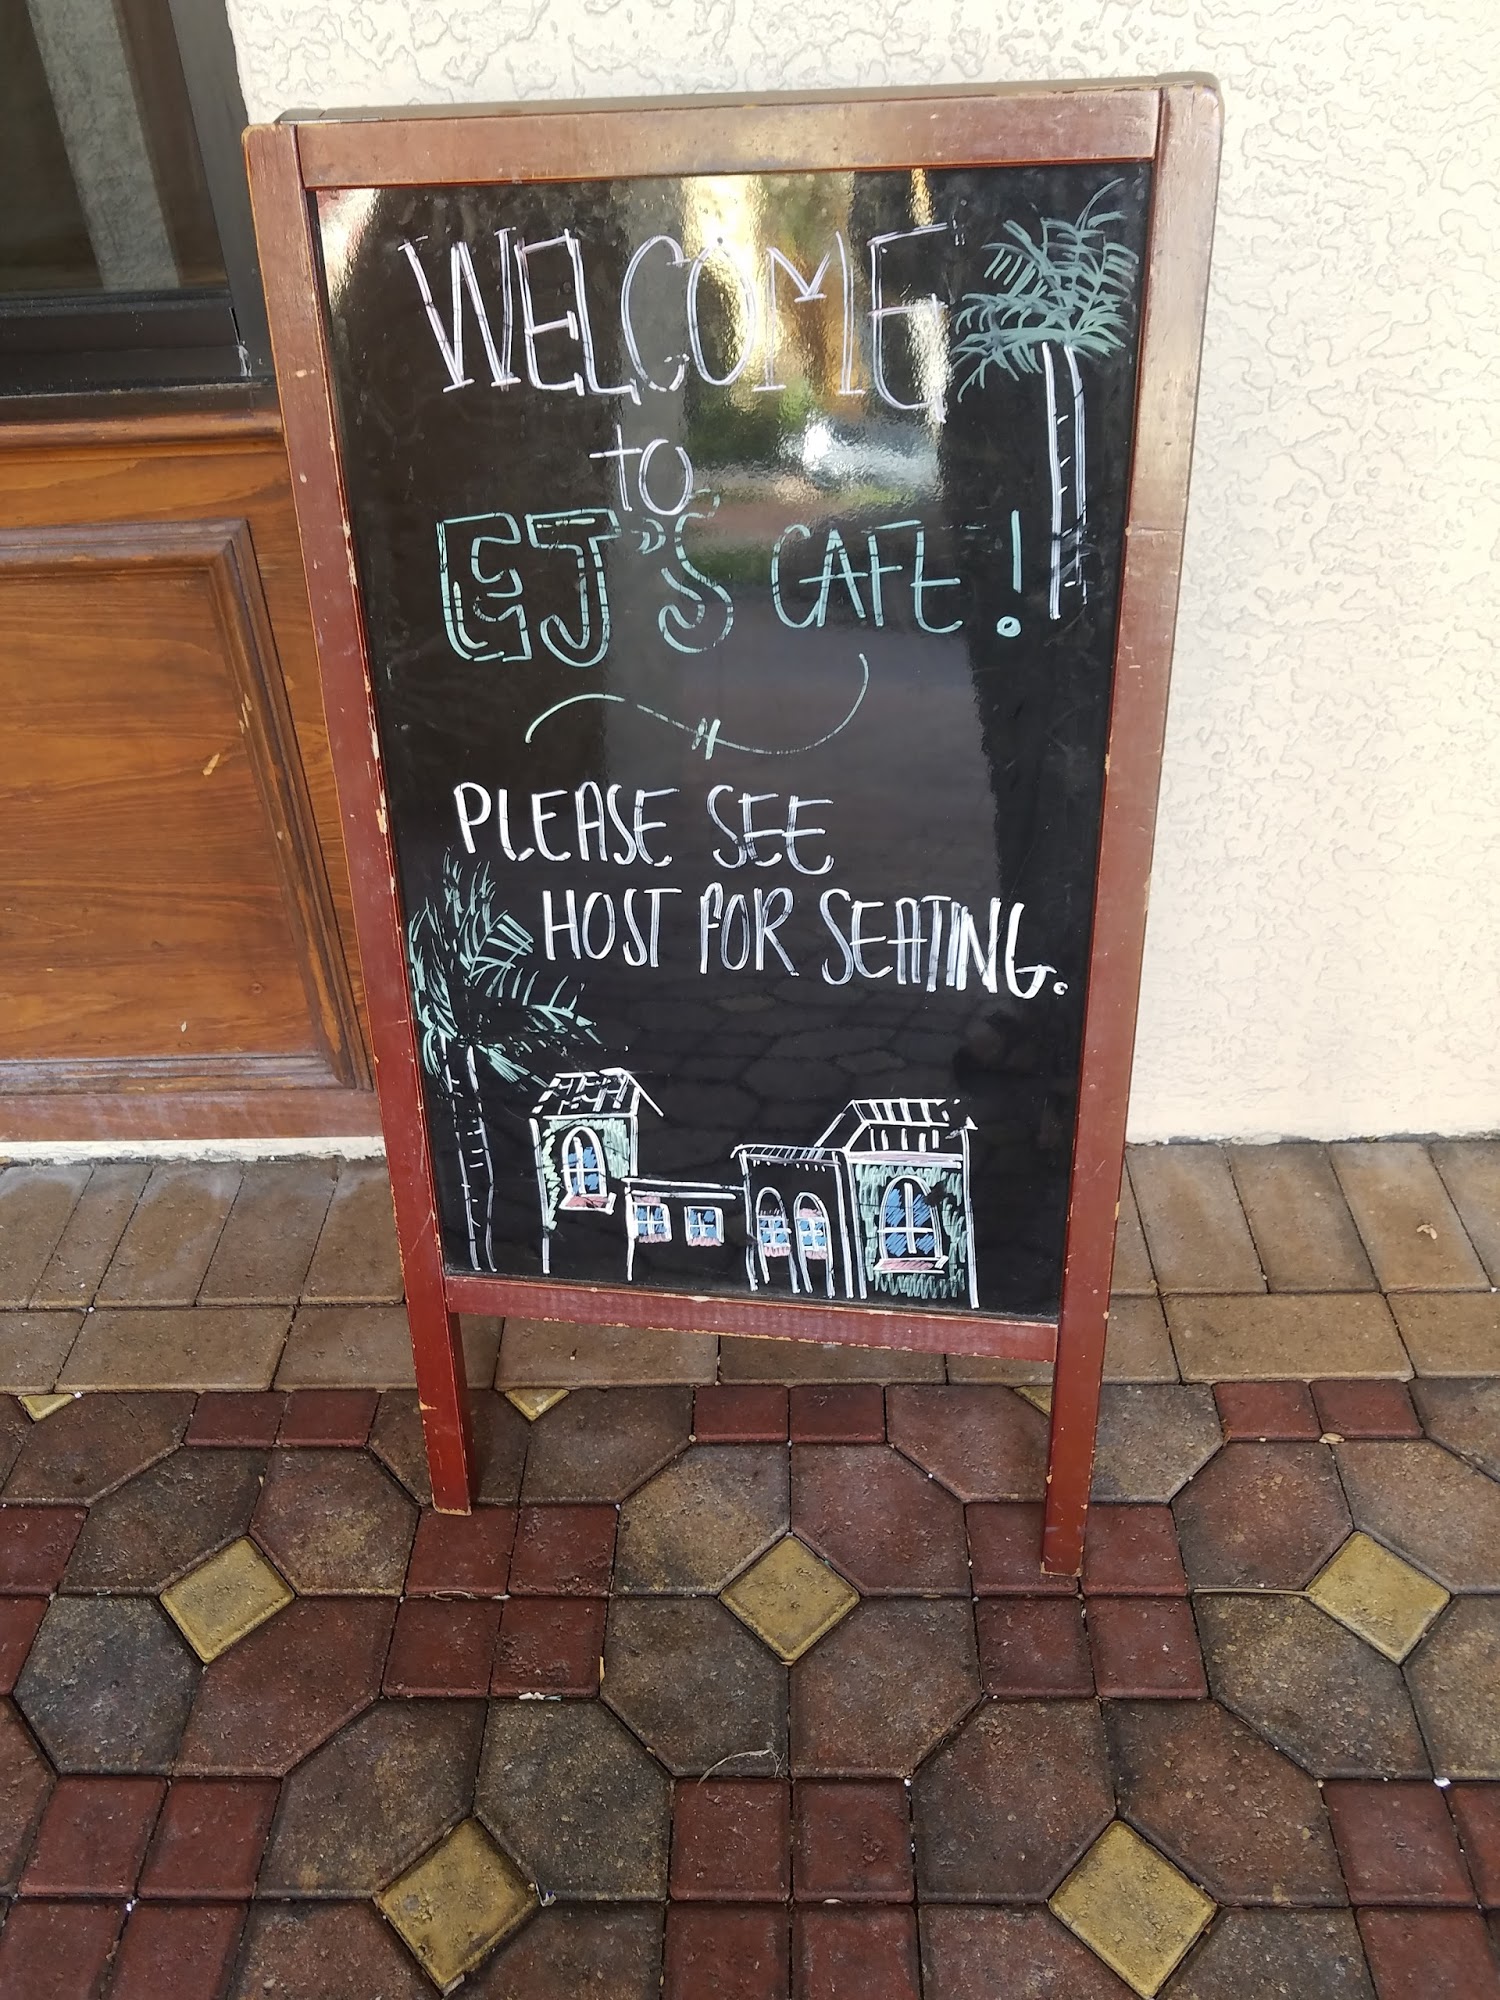 WELCOME
to
EJ'S CAFE!
PLEASE SEE
HOST FOR SEATING.